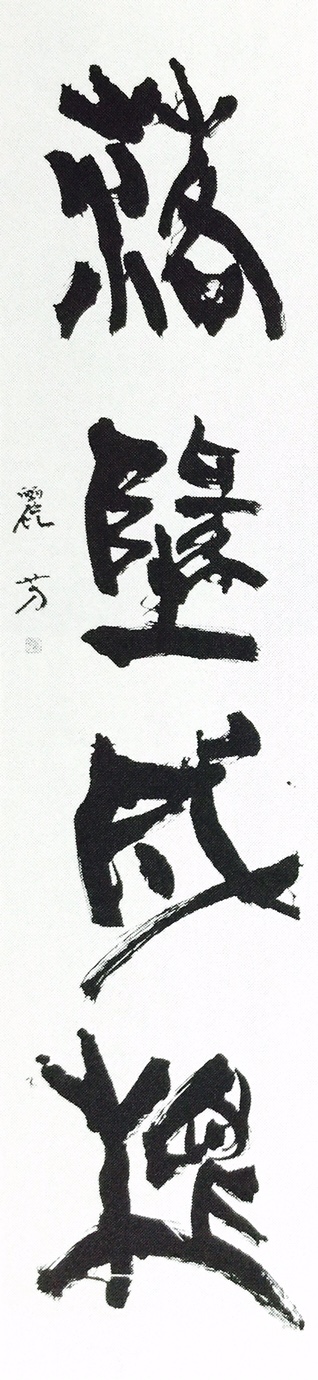 落墜成
麗芳